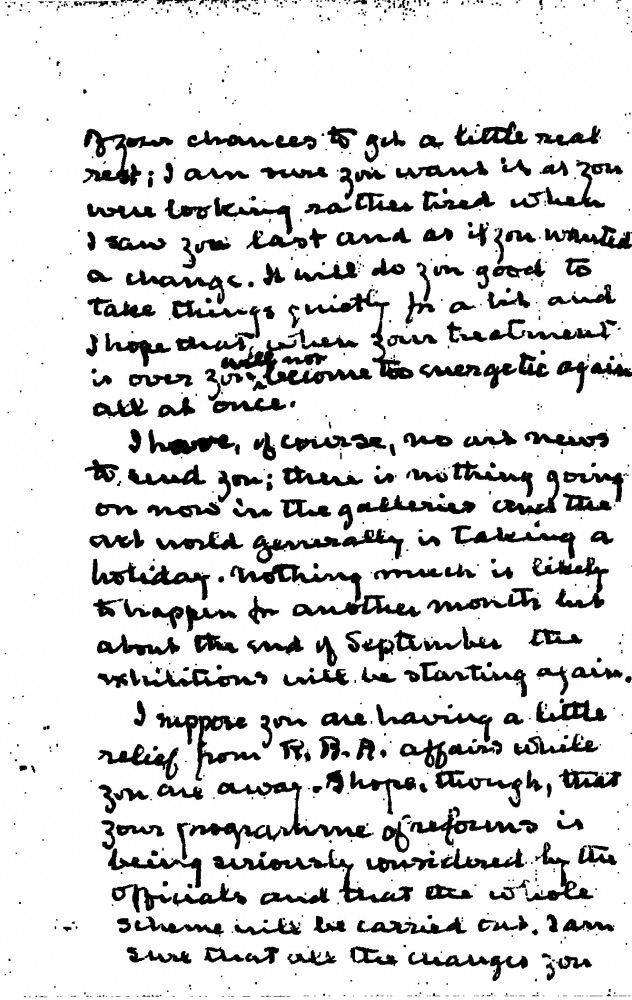 of your chances to get a little real
rest; I am sure you want it as you
were looking rather tired when
I saw you last and as if you wanted
a change. It will do you good to
take things quietly for a bit and
I hope that when your treatment
is over you will not become too energetic again
all at once.
I have, of course, no art news
to send you; there is nothing going
on now in the galleries and the
art world generally is taking a
holiday. Nothing much is likely
to happen for another month but
about the end of September the
exhibitions will be starting again.
I suppose you are having a little
relief from R.B.A. affairs while
you are away. I hope, though, that
your programme of reforms is
being seriously considered by the
officials and that the whole
scheme will be carried out. I am
sure that all the changes you